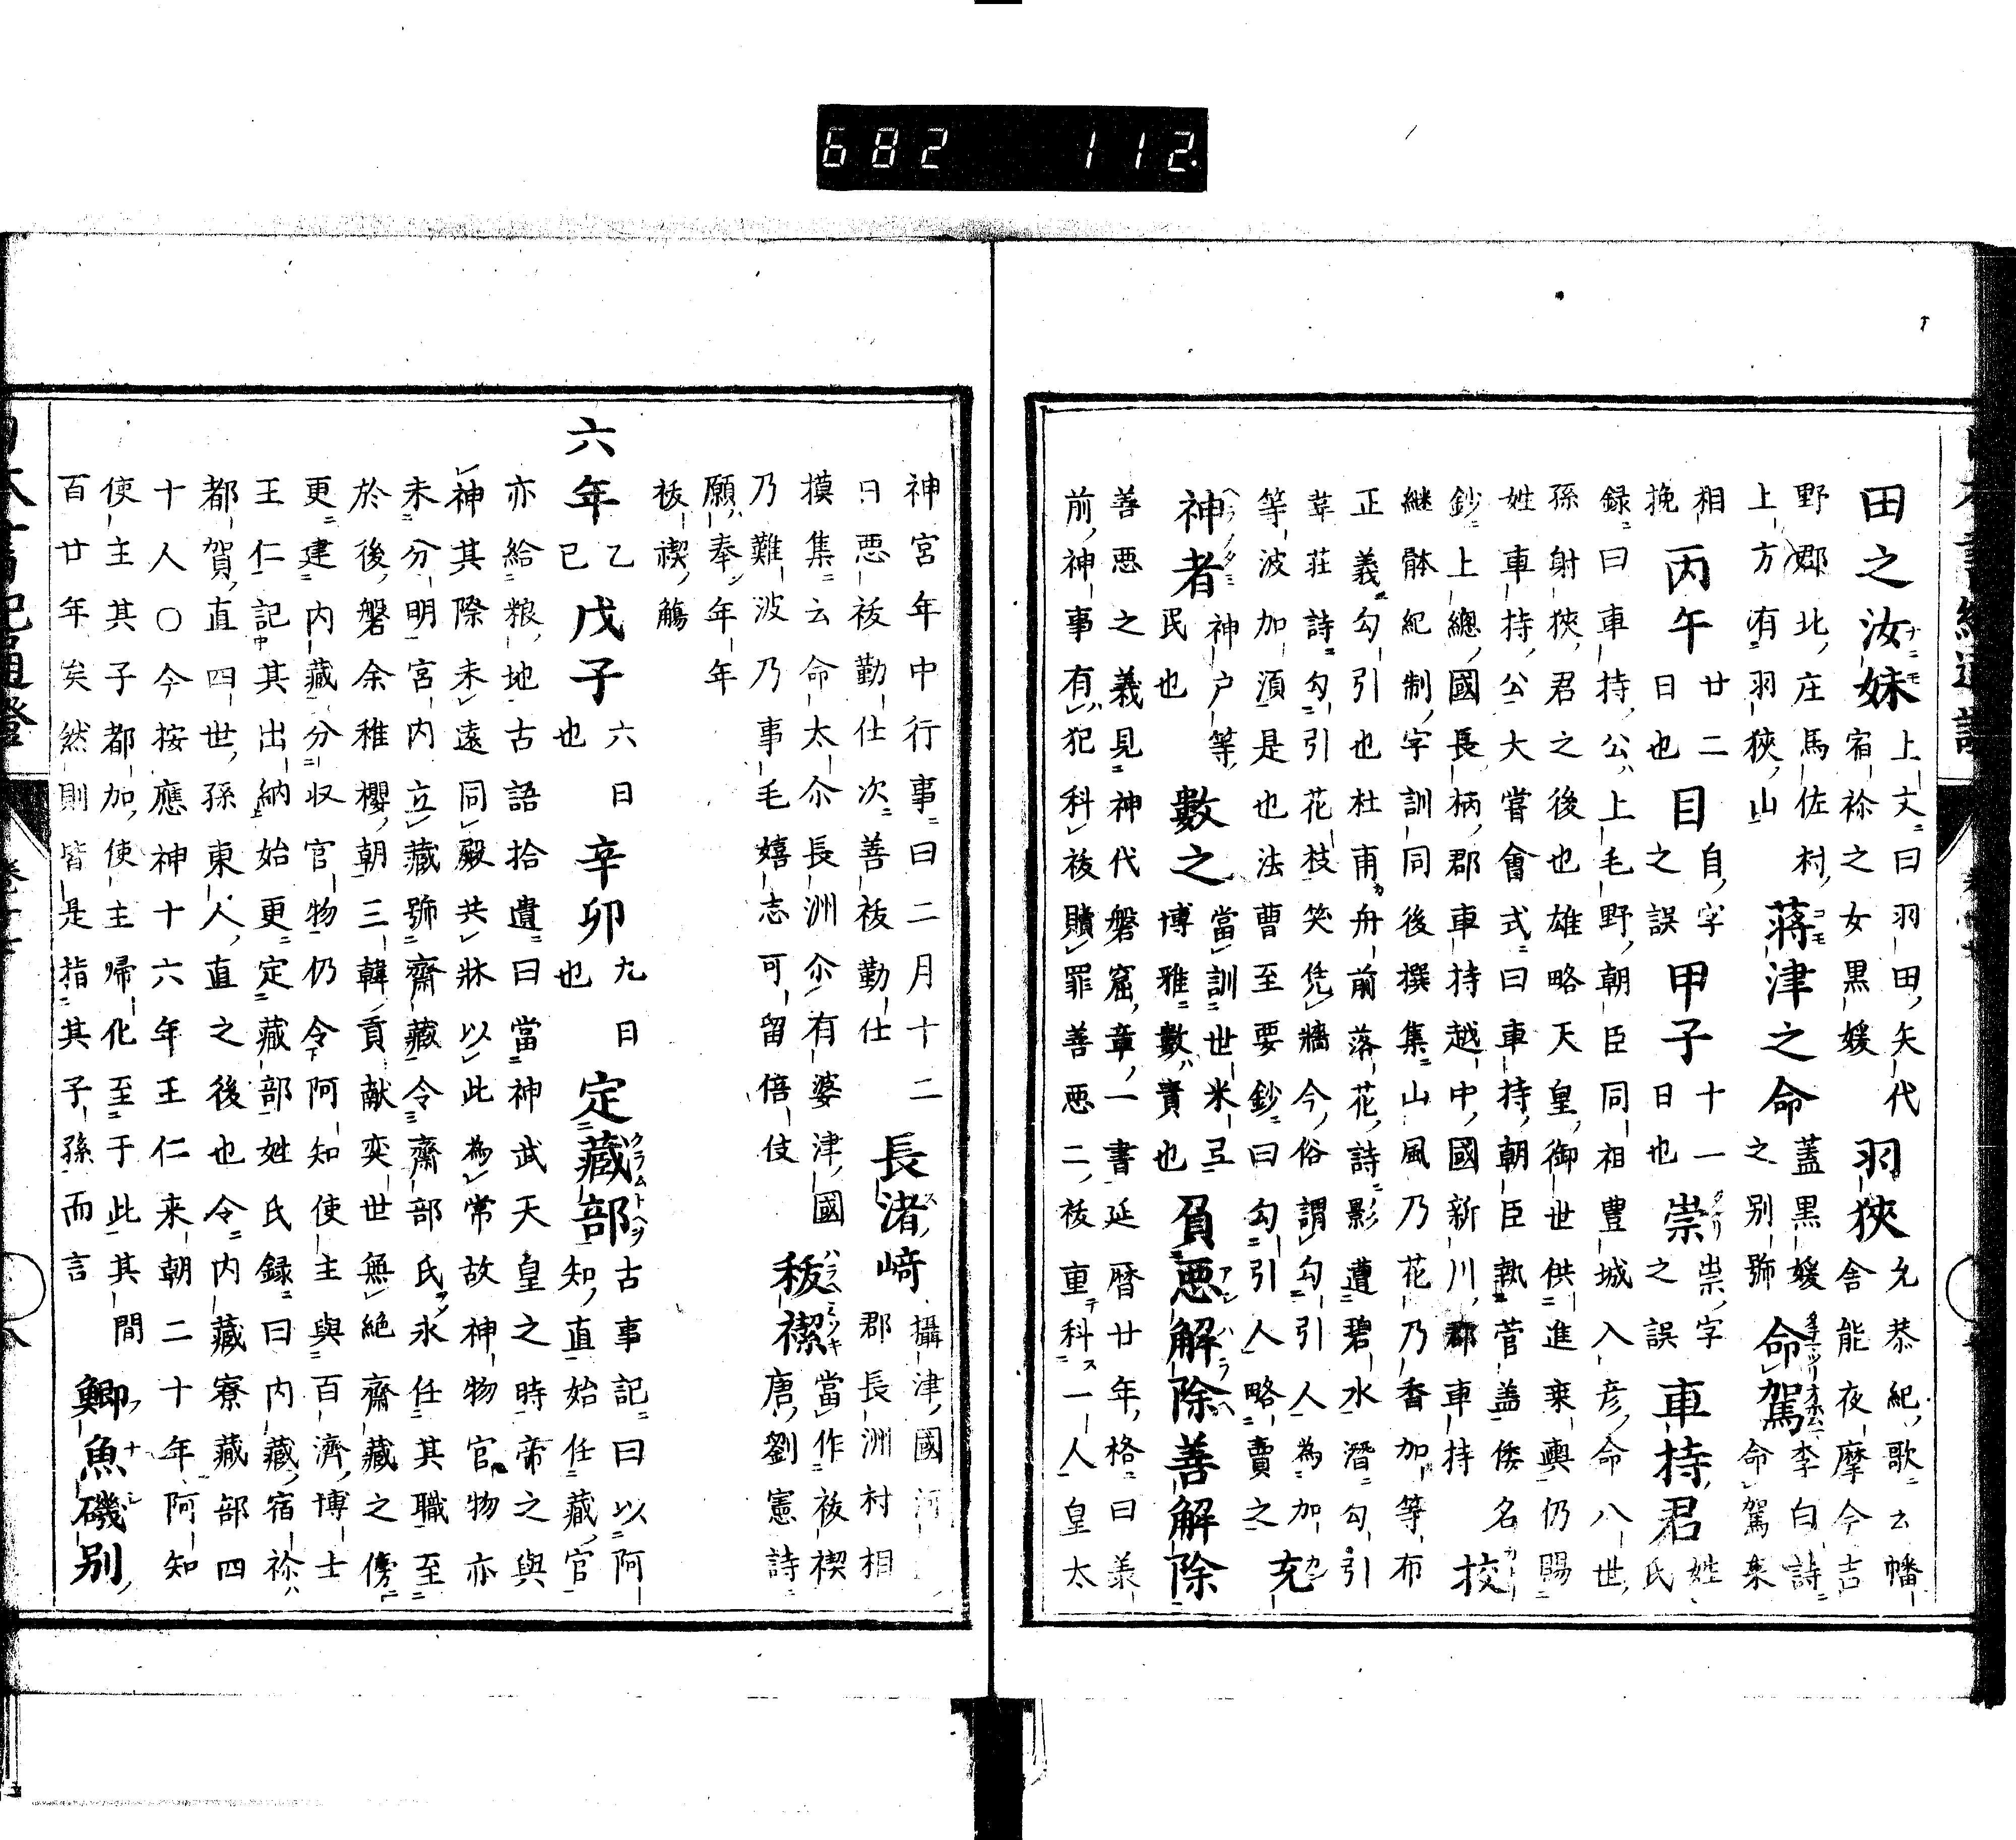 682 112
田之汝妹上文曰羽田矢代宿祢之女黒媛羽狹允恭紀歌云幡舎能夜摩今吉
野郡北庄馬佐村上方有羽狹山蒋津之命蓋黒媛之別號命駕李白詩命駕来
相挽丙午廿二日也目自字之誤甲子十一日也崇祟字之誤車持君姓氏
録曰車持公上毛野朝臣同祖豊城入彦命八世
孫射狹君之後也雄略天皇御世供進乗輿仍賜
姓車持公大嘗會式曰車持朝臣執菅盖倭名
鈔上總國長柄郡車持越中國新川郡車持挍
継體紀制字訓同後撰集山風乃花乃香加等布
正義勾引也杜甫舟前落花詩影遭碧水潜勾引
韋荘詩勾引花枝笑凭牆今俗謂勾引人為加
等波加須是也法曹至要鈔曰勾引人略賣之充
神者神戸等民也數之當訓世米弖博雅數責也負悪解除善解除
善悪之義見神代磐窟章一書延暦廿年格曰義
前神事有犯科祓贖罪善悪二祓重科一人皇太
神宮年中行事曰二月十二日悪祓勤仕次善祓勤仕長渚﨑攝津國河郡長洲村相
摸集云命太尓長洲尓有婆津國
乃難波乃事毛嬉志可留倍伎秡禊當作祓禊唐劉憲詩
願奉年年
祓禊觴
六年乙巳戊子六日也辛卯九日也定藏部古事記曰以阿知直始任藏官
亦給粮地古語拾遺曰當神武天皇之時帝之與
神其際未遠同殿共牀以此為常故神物官物亦
未分明宮内立藏號齋藏令齋部氏永任其職至
於後磐余稚櫻朝三韓貢献奕世無絶齋藏之傍
更建内藏分収官物仍令阿知使主與百濟博士
王仁記其出納始更定藏部姓氏録曰内藏宿祢
都賀直四世孫東人直之後也令内藏寮藏部四
十人〇今按應神十六年王仁来朝二十年阿知
使主其子都加使主帰化至于此其間
百廿年矣然則皆是指其子孫而言鯽魚磯別